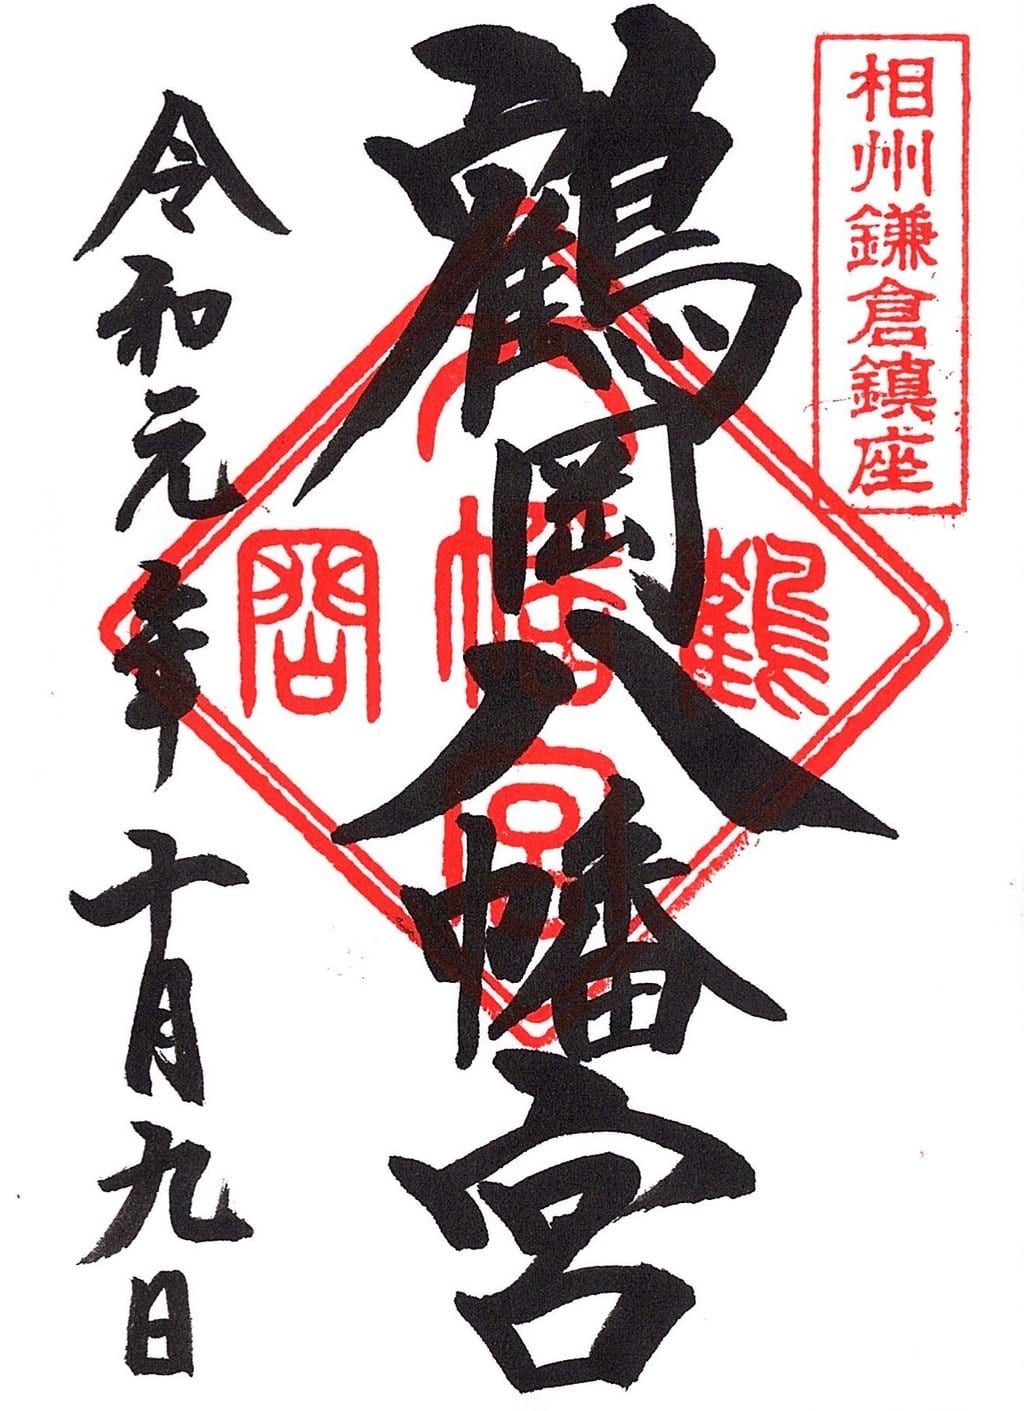 相州鎌倉鎮座
鶴岡八幡宮
鶴
八
幡
宮
岡
令和元年十月九日